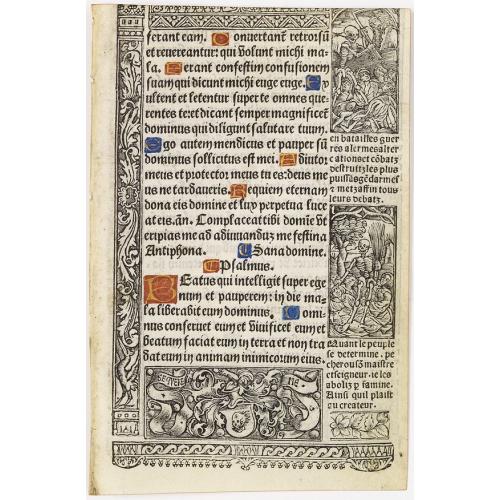 ferant eam. Conuertant retrorsū
et reuereantur: qui volunt michi ma-
la. Ferant confestim confusionem
suam qui dicunt michi euge euge. Ex
ultent et letentur super te omnes que-
rentes te: et dicant semper magnificet
dominus qui diligunt salutare tuum.
Ego autem mendicus et pauper sū
dominus sollicitus est mei. Adiutor
meus et protector meus tu es: deus me
us ne tardaueris. Requiem eternam
dona eis domine et lux perpetua luce
at eis. añ. Complaceat tibi domīe vt
eripias me ad adiuuandūz me festina
Antiphona. Sana domine.
Psalmus.
Beatus qui intelligit super ege
num et pauperem: in die ma-
la liberabit eum dominus. Domi-
nus conseruet eum et viuificet eum et
beatum faciat eum in terra et non tra
dat eum in animam inimicorum eius.
en batailles guer
res alermes alter
cations et cōbatz
destruitz les plus
puissās gēdarmes
z metz affin tous
leurs debatz.
Quant le peuple
se determine. pe
cher ou sm̄ maistre
et seigneur. ie les
abolis p famine.
Ainsi quil plaist
au createur.